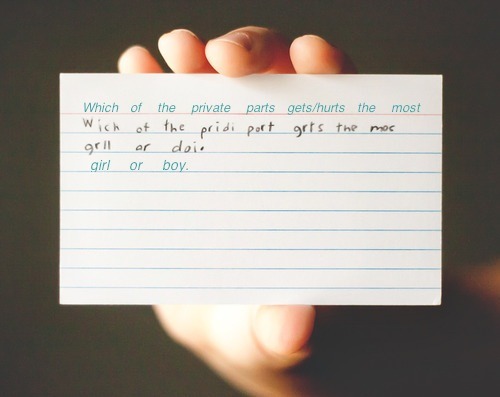 Which of the private parts gets/hurts the most
Wich of the pridi port grts the moc
grll or doi.
girl or boy.